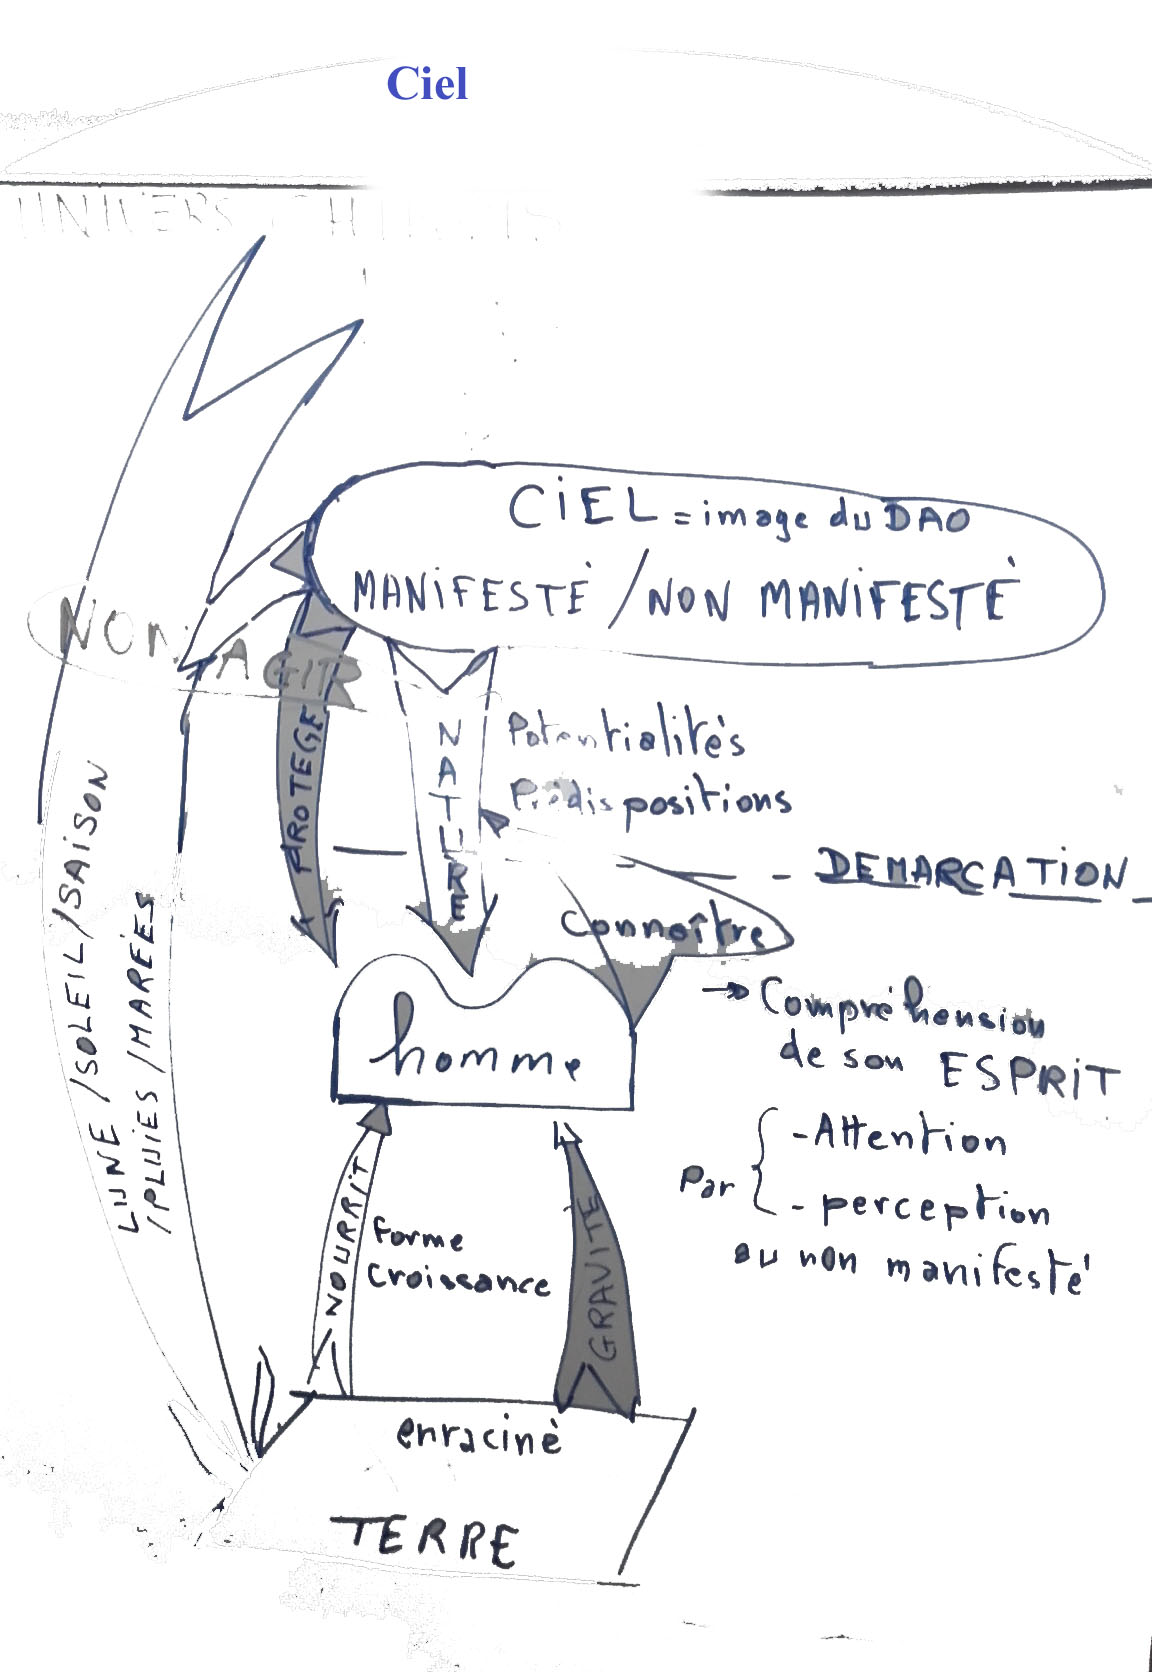 Ciel
UNIVERS
CIEL = image du DAO
MANIFESTÉ / NON MANIFESTÉ
NON AGIR
PROTEGE
NATURE
Potentialités
Prédispositions
- DEMARCATION -
Connaître
→ Compréhension
de son ESPRIT
Par { - Attention
- perception
au non manifesté
homme
LUNE / SOLEIL / SAISON
/ PLUIES / MARÉES
NOURRIT
Forme
Croissance
GRAVITÉ
enraciné
TERRE